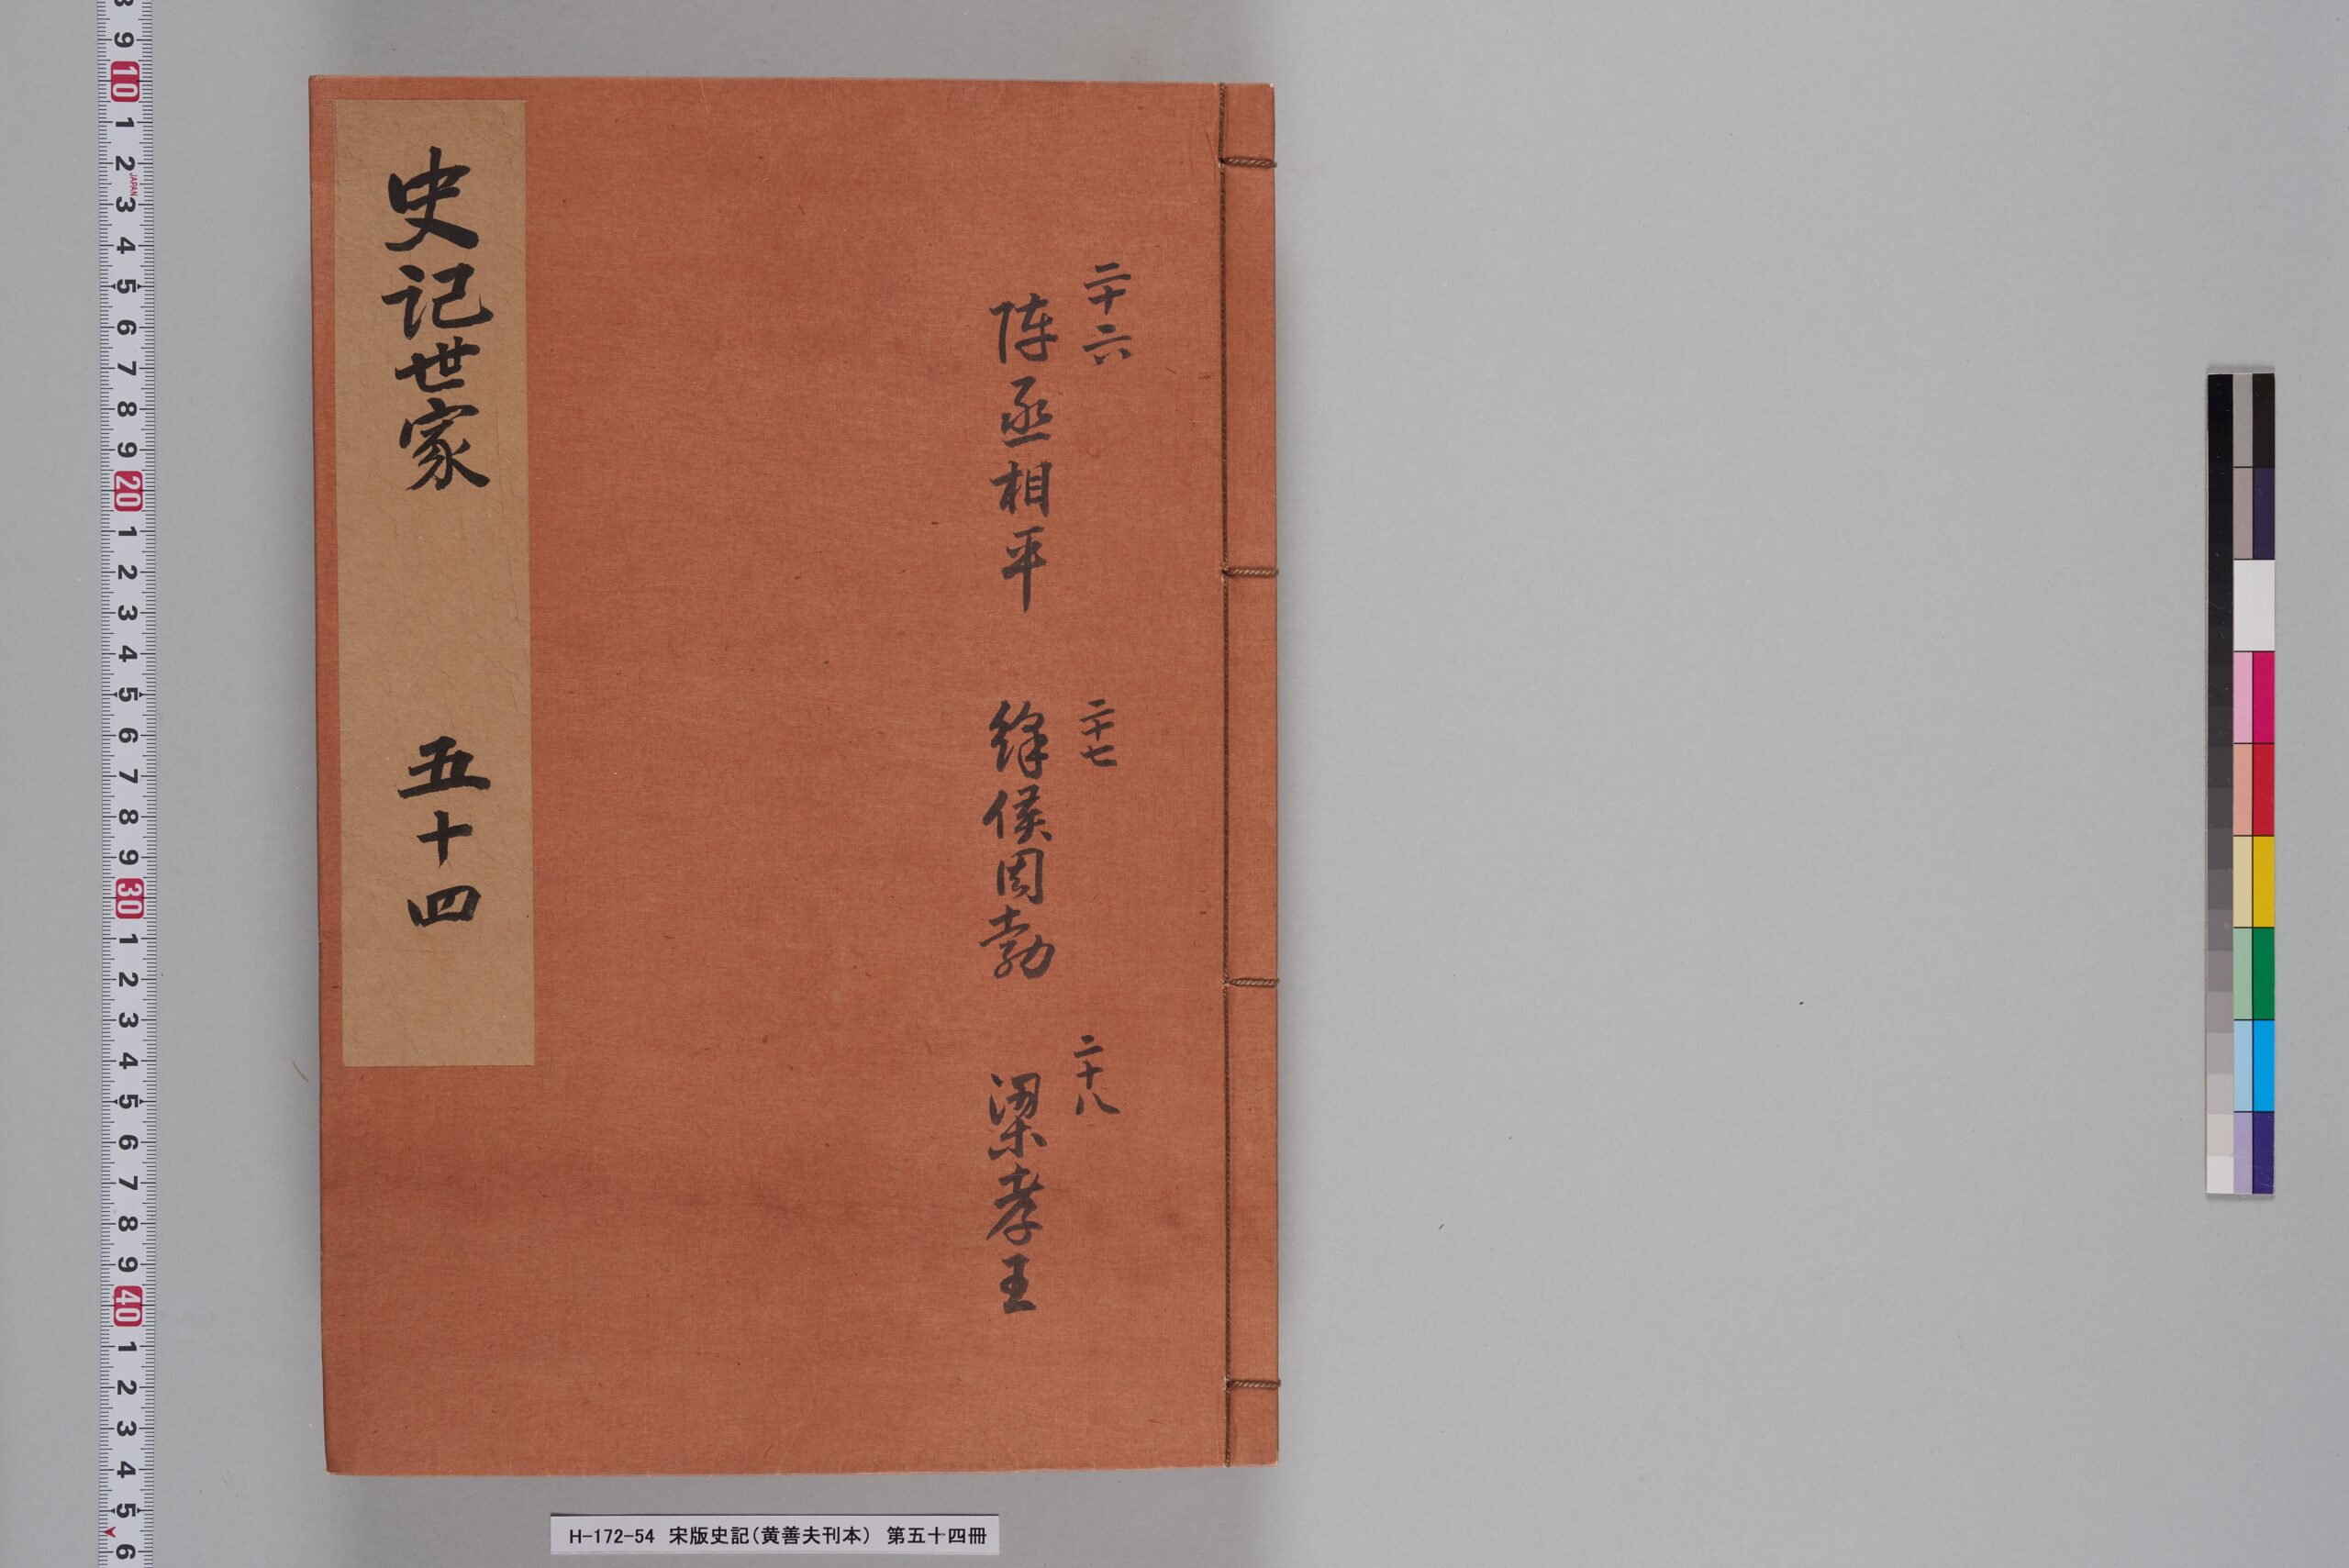 史记世家 五十四
二十六
陈丞相平
二十七
絳侯周勃
二十八
梁孝王
H-172-54 宋版史記(黄善夫刊本) 第五十四冊
JAPAN
8 9 10 1 2 3 4 5 6 7 8 9 20 1 2 3 4 5 6 7 8 9 30 1 2 3 4 5 6 7 8 9 40 1 2 3 4 5 6